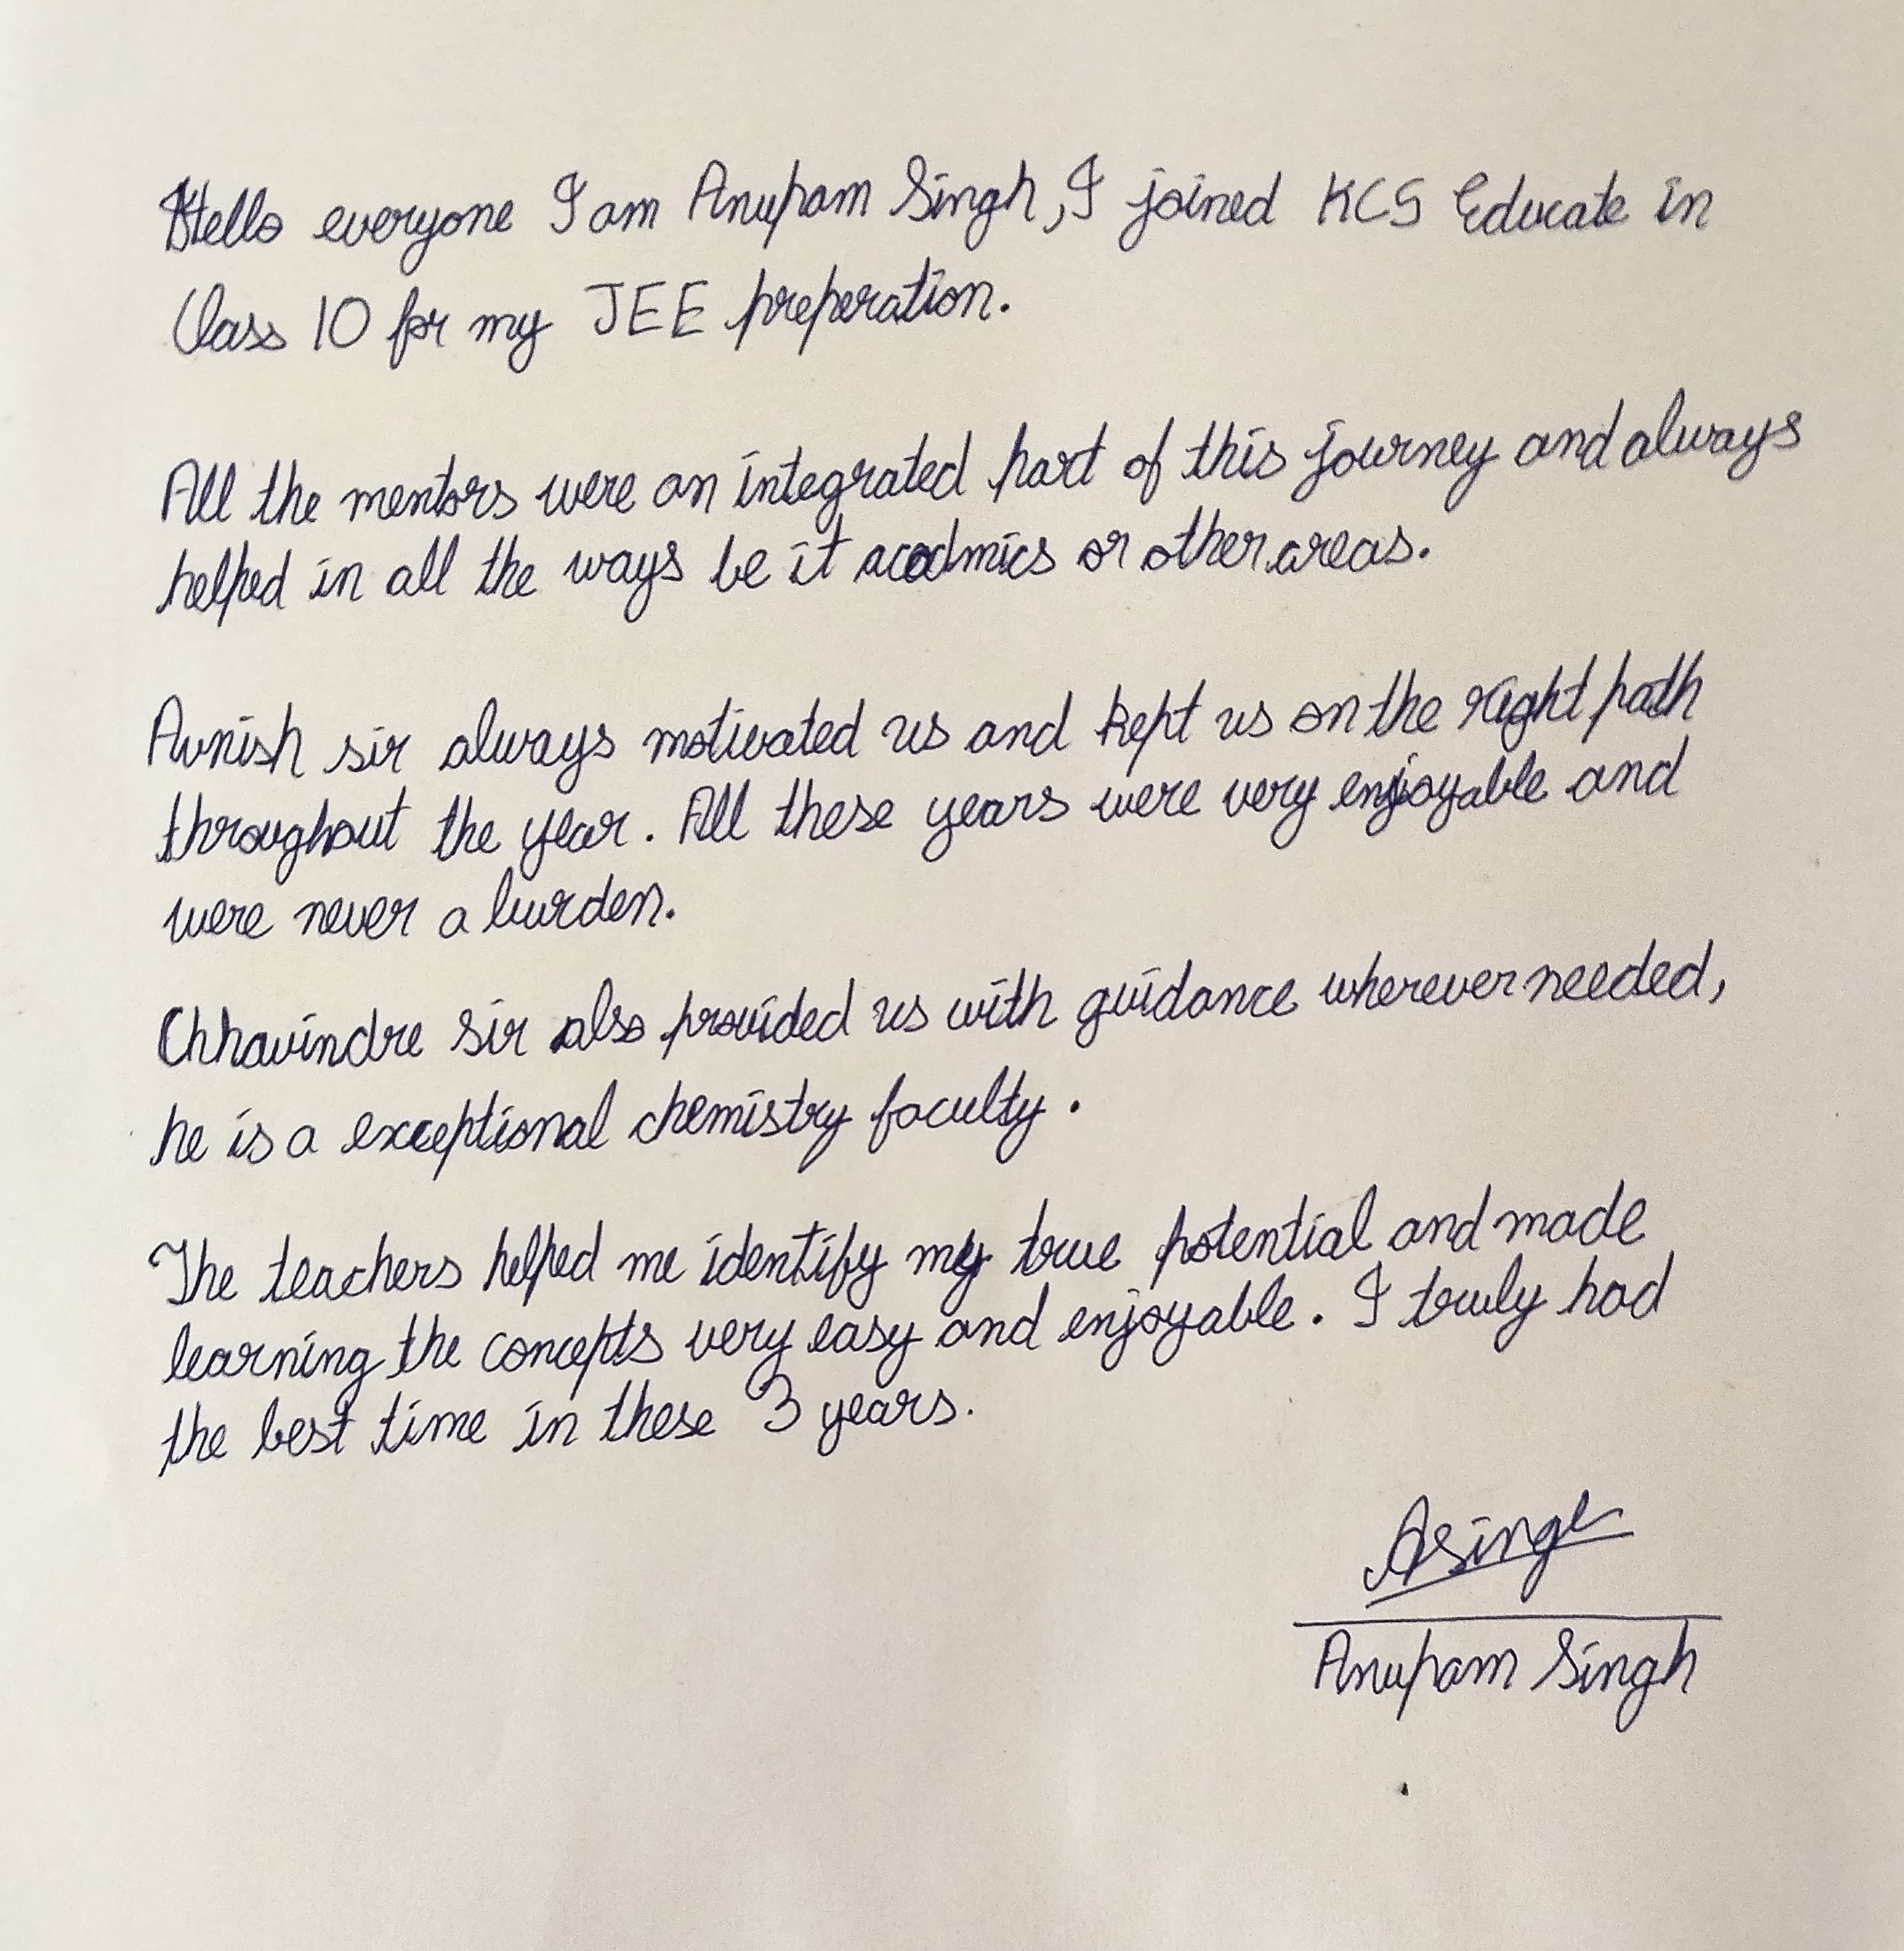 Hello everyone I am Anupam Singh, I joined KCS Educate in
Class 10 for my JEE preperation.
All the mentors were an integrated part of this journey and always
helped in all the ways be it acadmics or other areas.
Avnish sir always motivated us and kept us on the right path
throughout the year. All these years were very enjoyable and
were never a burden.
Chhavindre sir also provided us with guidance wherever needed,
he is a exceptional chemistry faculty.
The teachers helped me identify my true potential and made
learning the concepts very easy and enjoyable. I truly had
the best time in these 3 years.
Asingh
Anupam Singh